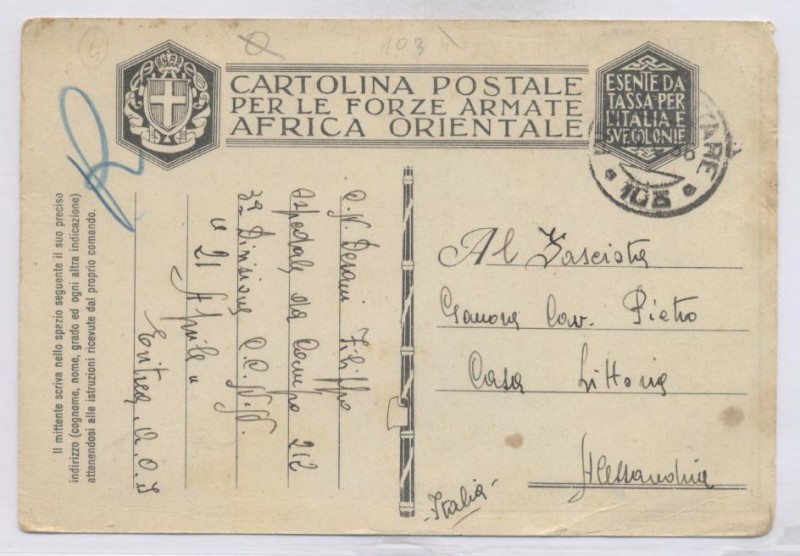 4
103
CARTOLINA POSTALE
PER LE FORZE ARMATE
AFRICA ORIENTALE
ESENTE DA
TASSA PER
L'ITALIA E
SVE COLONIE
108
R
Il mittente scriva nello spazio seguente il suo preciso
indirizzo (cognome, nome, grado ed ogni altra indicazione)
attenendosi alle istruzioni ricevute dal proprio comando.
Filippo
Ospedale da Campo 212
3a Divisione CC.NN.
" 21 Aprile "
Eritrea A.O.I
Al Fascista
Cav. Pietro
Casa Littoria
Alessandria
- Italia -